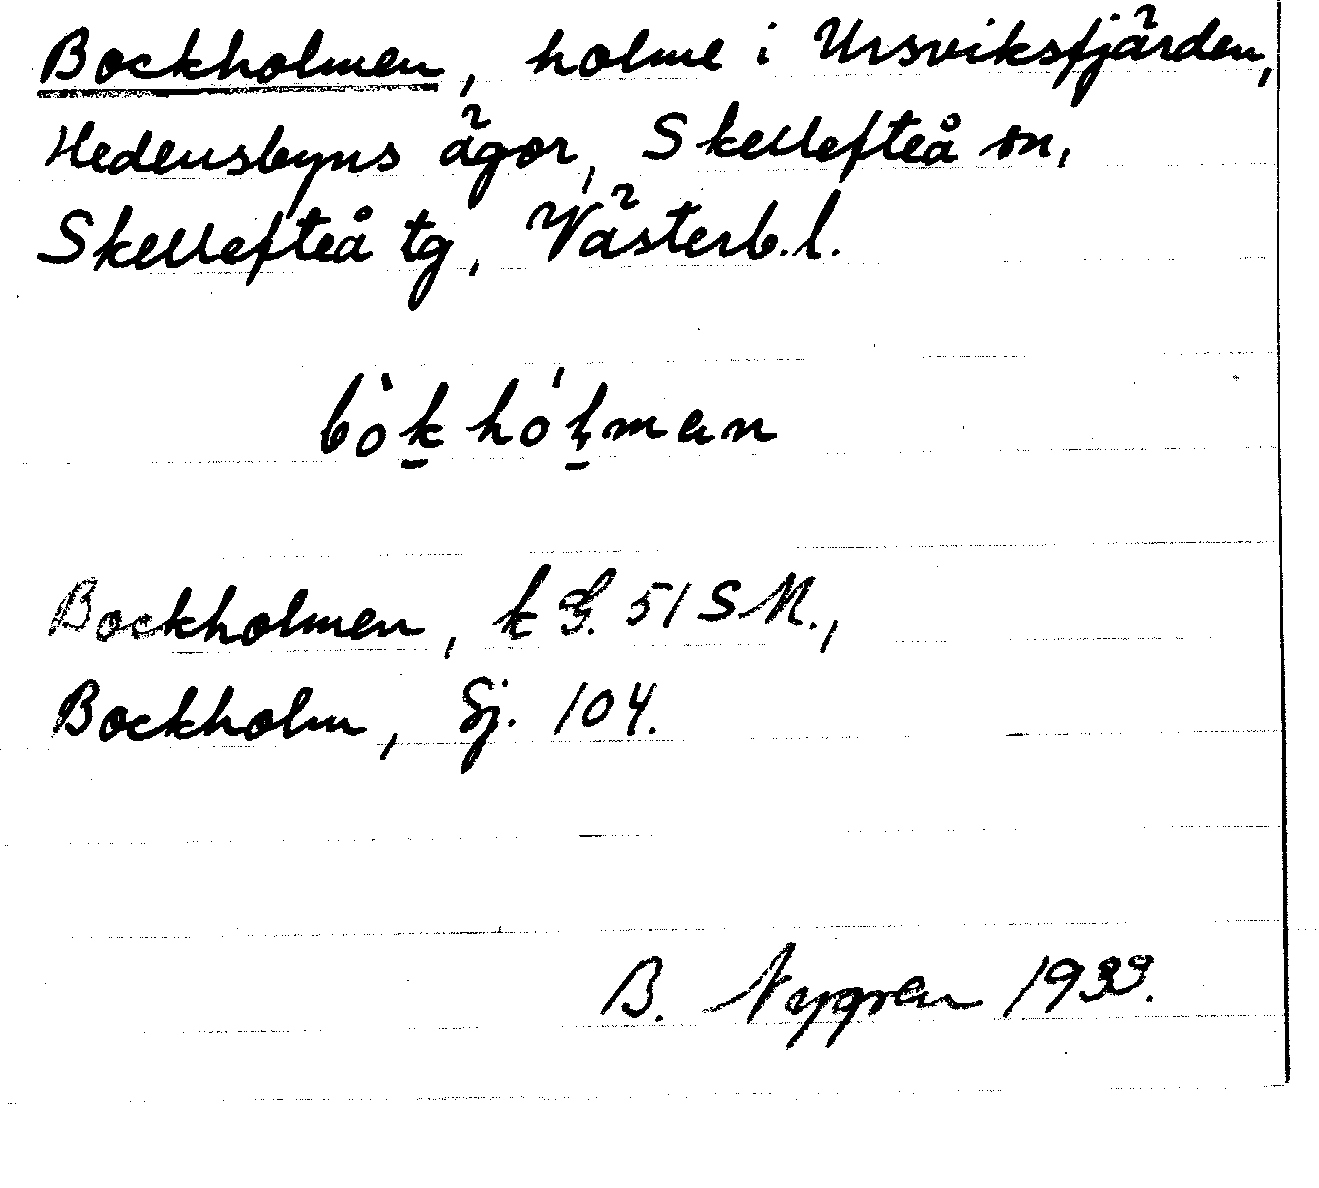 Bockholmen, holme i Ursviksfjärden,
Hedensbyns ägor, Skellefteå sn,
Skellefteå tg, Västerb. l.
bòk̲hóḷman
Bockholmen, k G. 51 S M.,
Bockholm, Sj. 104.
B. Nygren 1933.